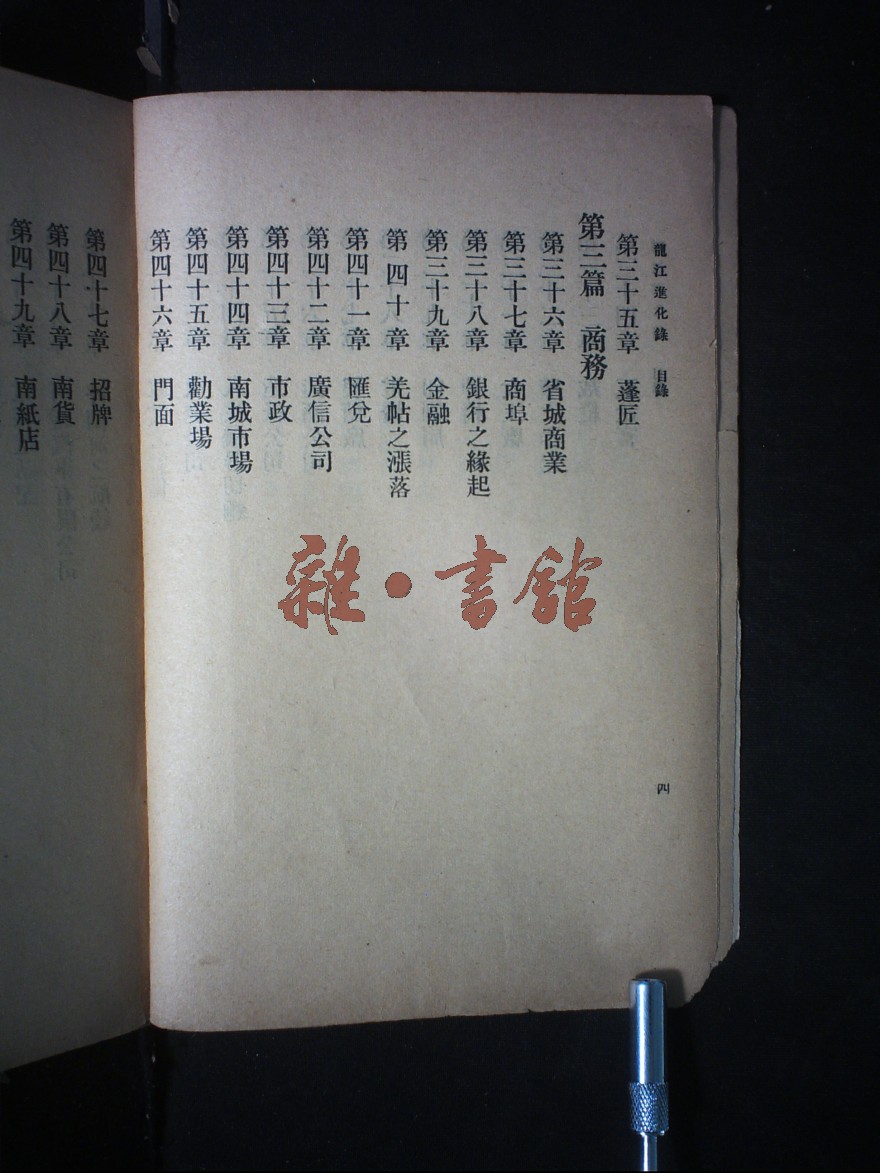 龍江進化錄 目錄 四
第三十五章 蓬匠
第三篇 商務
第三十六章 省城商業
第三十七章 商埠
第三十八章 銀行之緣起
第三十九章 金融
第四十章 羌帖之漲落
第四十一章 匯兌
第四十二章 廣信公司
第四十三章 市政
第四十四章 南城市場
第四十五章 勸業場
第四十六章 門面
第四十七章 招牌
第四十八章 南貨
第四十九章 南紙店
雜·書館